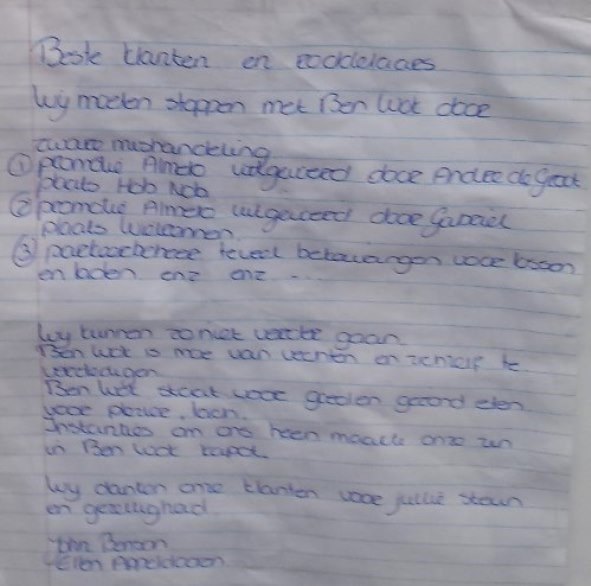 Beste klanten en roddelaars
Wij moeten stoppen met Ben Wok door
zware mishandeling
① promotie Almelo uitgevoerd door Andre de Groot
plaats Hob Nob
② promotie Almelo uitgevoerd door Gabriel
plaats
③ parkeerbeheer teveel bekeuringen voor lossen
en laden enz enz ...
Wij kunnen zo niet verder gaan
Ben Wok is moe van vechten en zichzelf te
verdedigen
Ben Wok staat voor goed en gezond eten
voor plezier, lach.
Instanties om ons heen maakte onze zin
in Ben Wok kapot.
Wij danken onze klanten voor jullie steun
en gezelligheid
John
Ellen